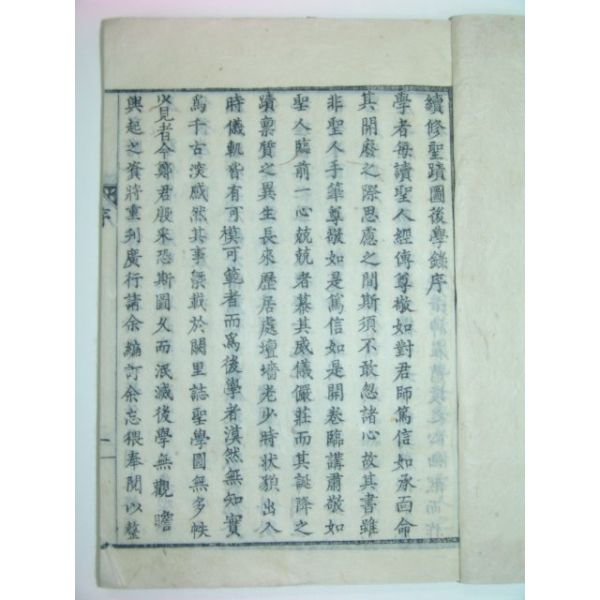 續修聖蹟圖後學錄序
學者每讀聖人經傳尊敬如對君師篤信如承面命
其開廢之際思慮之間斯須不敢忽諸心故其書雖
非聖人手筆尊敬如是篤信如是開卷臨講肅敬如
聖人臨前一心兢兢者慕其威儀儼莊而其誕降之
蹟稟質之異生長來歷居處壇墻老少時狀貌出入
時儀軌皆有可模可範者而爲後學者漠然無知實
爲千古淡感然其事無載於闕里誌聖學圖無多帙
必見者今鄭君殷采恐斯圖久而泯滅後學無觀瞻
興起之資將重刊廣行請余編訂余忘猥奉閱以整
序